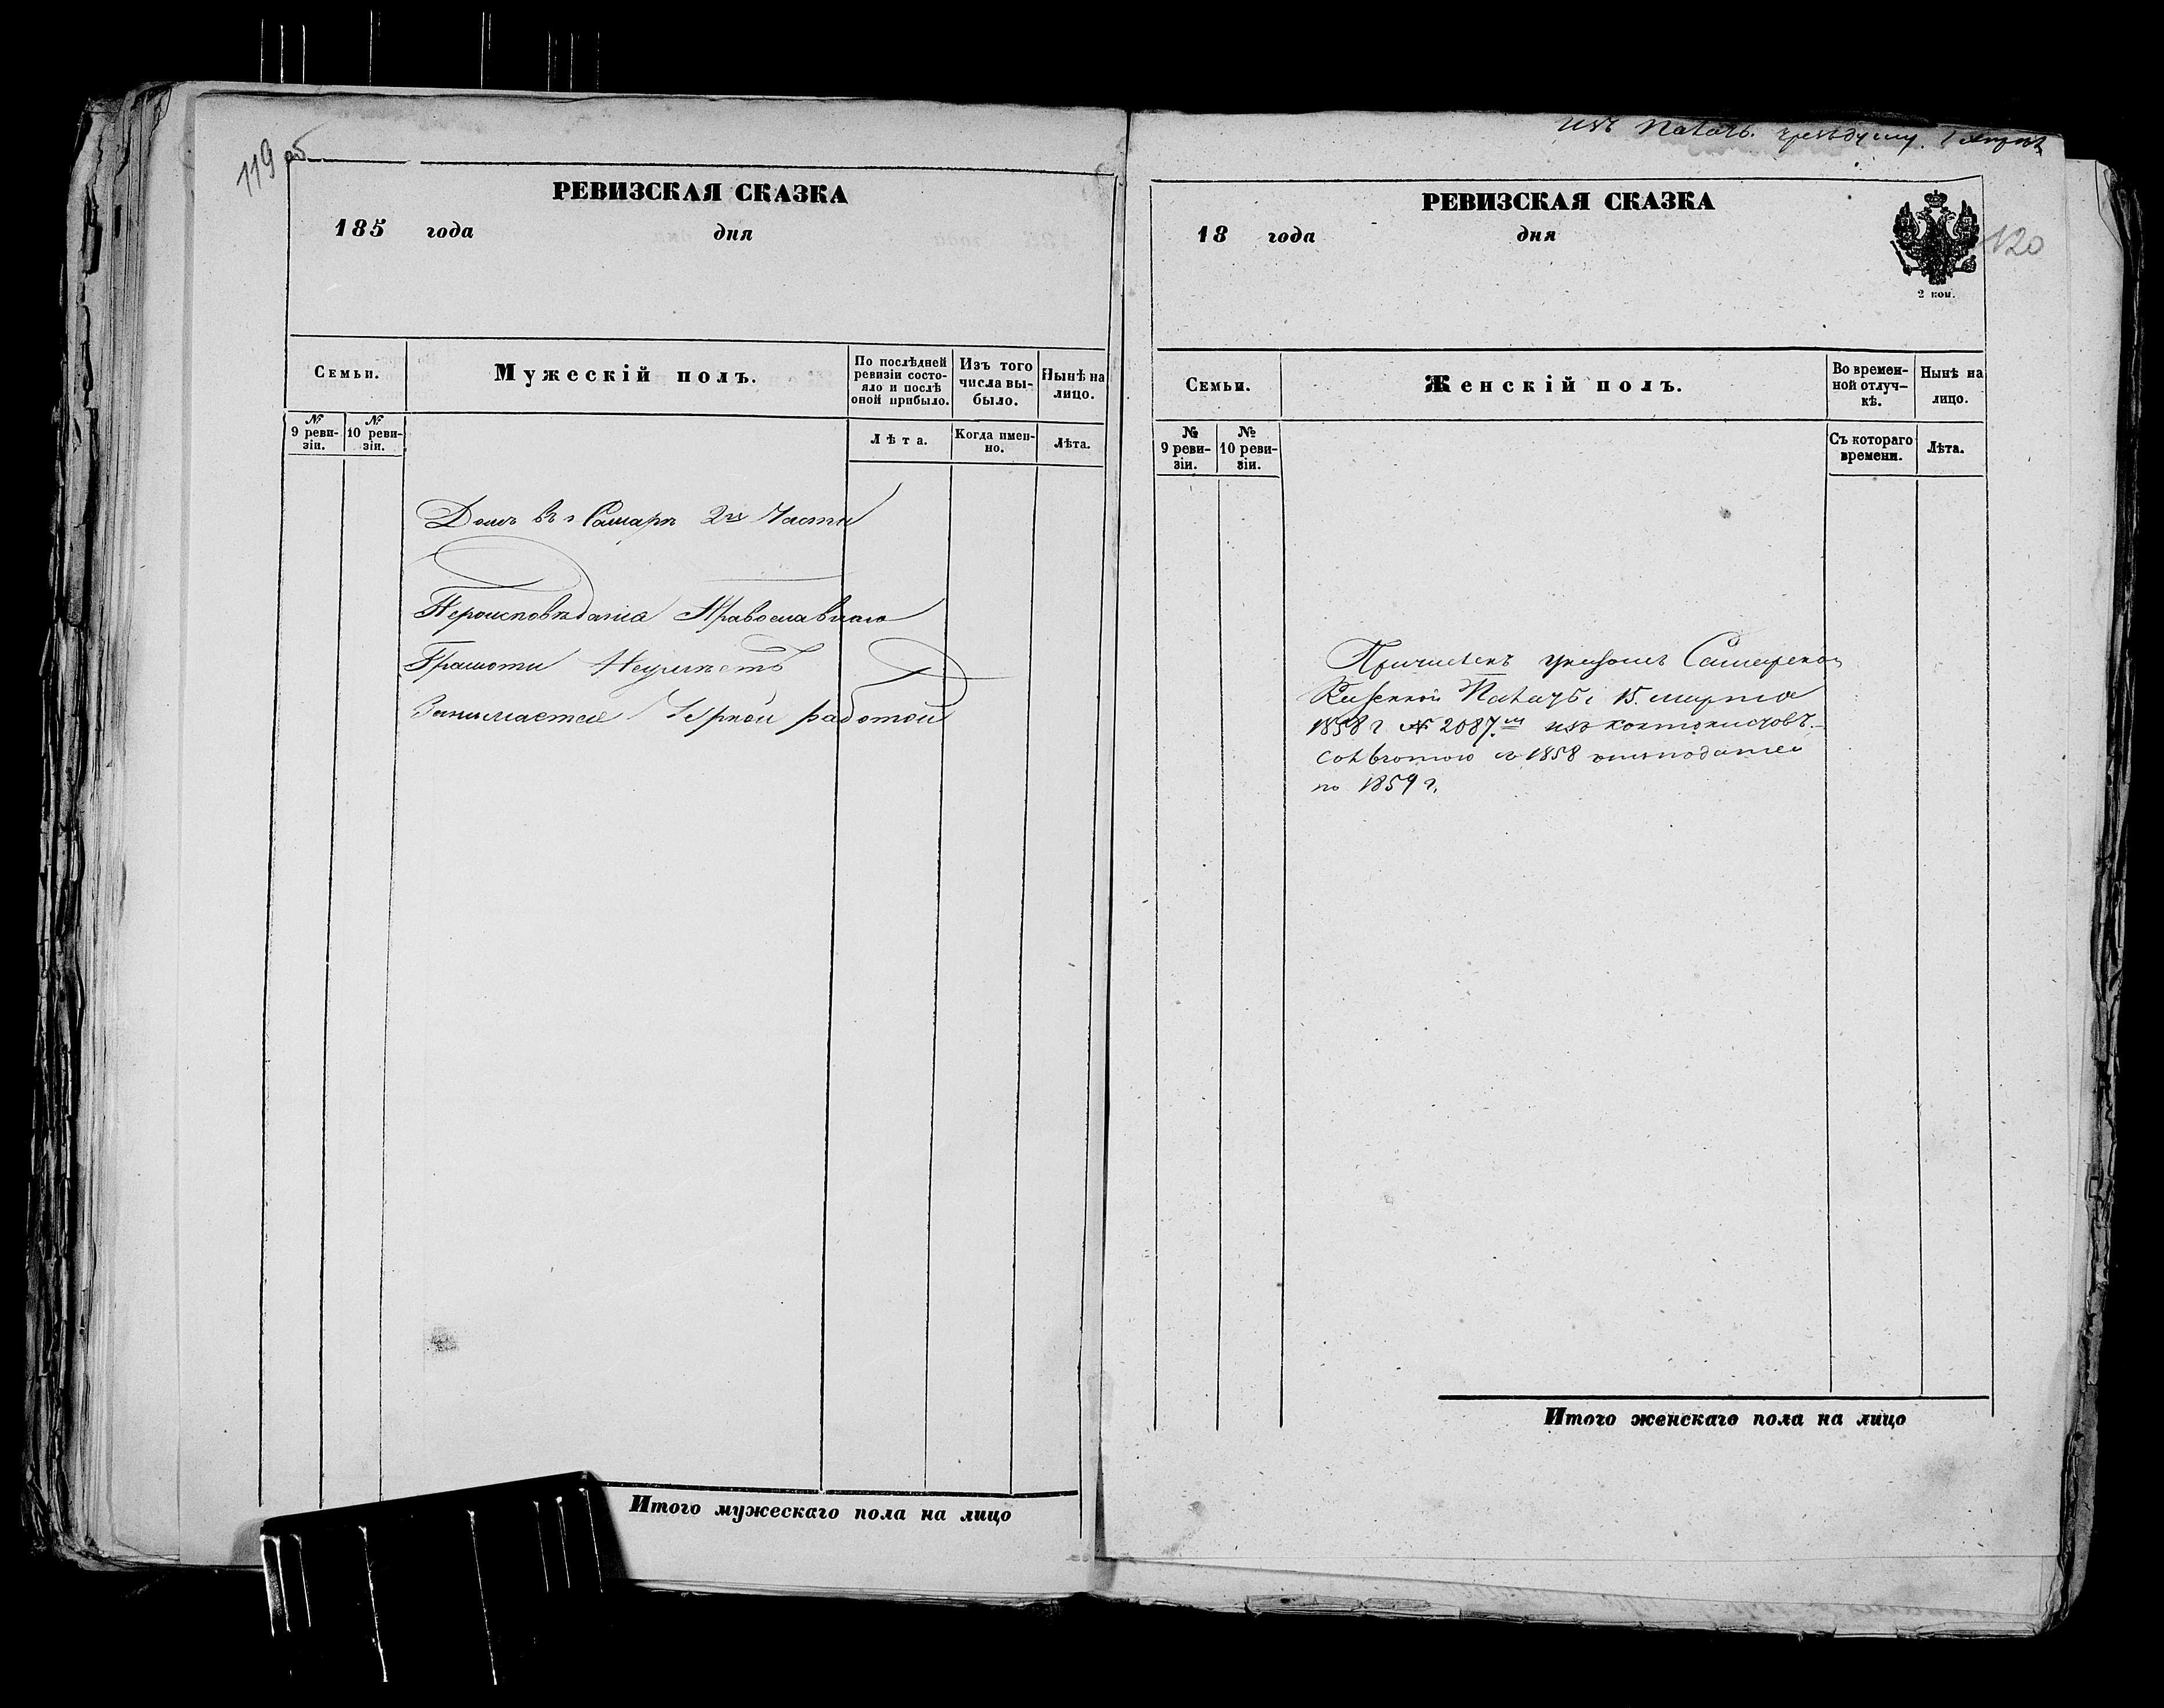 119 об
РЕВИЗСКАЯ СКАЗКА
185 года дня
Семьи.
Мужескій полъ.
По послѣдней ревизіи состо-
яло и послѣ
оной прибыло.
Изъ того
числа вы-
было.
Нынѣ на
лицо.
№
9 реви-
зіи.
№
10 реви-
зіи.
Лѣта.
Когда имен-
но.
Лѣта.
Домъ въ г Самарѣ 2й Части
Вероисповѣданія Православнаго
Грамоти Неумѣетъ
Занимается Черной работой
Итого мужескаго пола на лицо
изъ
120
РЕВИЗСКАЯ СКАЗКА
18 года дня
2 коп.
Семьи.
Женскій полъ.
Во времен-
ной отлуч-
кѣ.
Нынѣ на
лицо.
№
9 реви-
зіи.
№
10 реви-
зіи.
Съ котораго
времени.
Лѣта.
Причисленъ указомъ Самарской
Казенной Палаты 15 марта
1858 г № 2087 изъ кантонистовъ
съльготою съ 1858 отъ податей
по 1859 г.
Итого женскаго пола на лицо